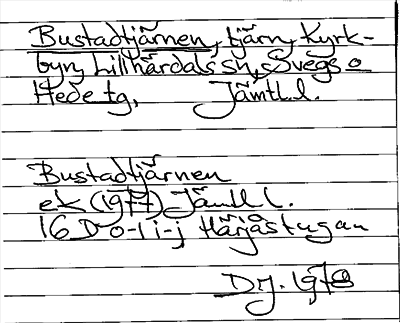 Bustadtjärnen, tjärn, Kyrk-
byn, Lillhärdals sn, Svegs o
Hede tg, Jämtl. l.
Bustadtjärnen
ek (1977) Jämtl l.
16 D o-1 i-j Härjåstugan
DJ. 1978